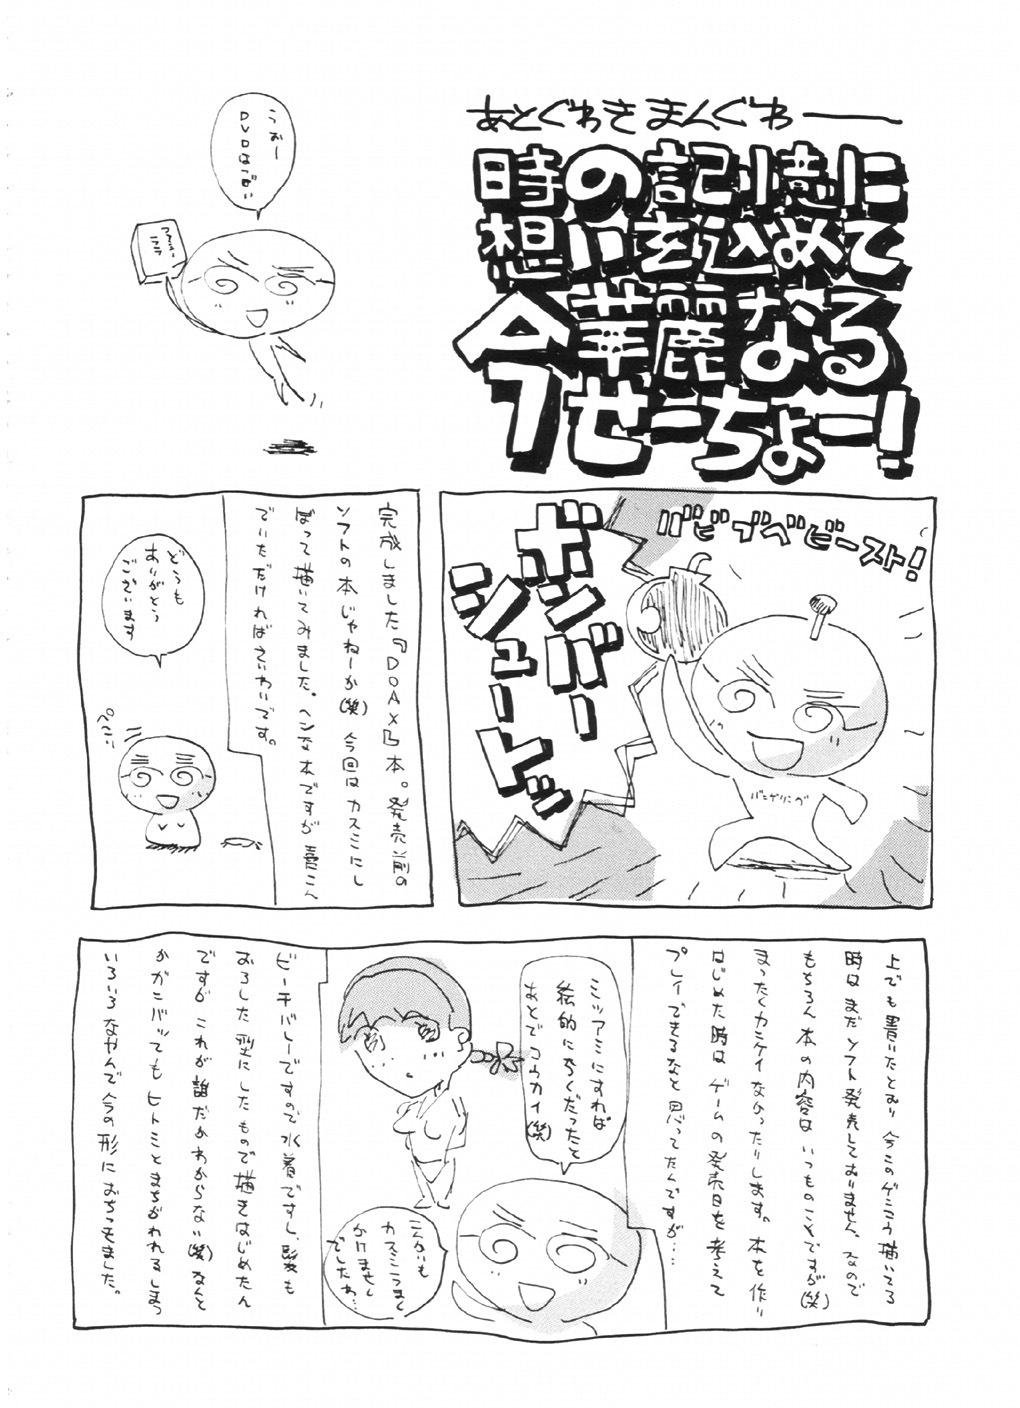 あとぐわきまんぐわ――
時の記憶に
想いを込めて
今華麗なる
せーちょー!
うおー
DVDはづおい
バビブベビースト!
ボンバー
シュートッ
バンゲリング
完成しました『DOAX』本。発売前の
ソフトの本じゃねーか(笑)今回はカスミにし
ぼって描いてみました。ヘンな本ですが喜こん
でいただければさいわいです。
どうも
ありがとう
ございます
ぺこい
上でも書いたとおり今このゲンコウ描いてる
時はまだソフト発売しておりません。なので
もちろん本の内容はいつものことですが(笑)
まったくカンケイなかったりします。本を作り
はじめた時はゲームの発売日を考えて
プレイできるなと思ってたんですが…
ミツアミにすれば
絵的にらくだったと
あとでコウカイ(笑)
こんかいも
カスミこつまく
かけません
でしたね…
ビーチバレーですので水着ですし、髪も
おろした型にしたもので描きはじめたん
ですがこれが誰だかわからない(笑)なんと
かガンバッてもヒトミとまちがわれるしまつ
いろいろなやんで今の形におちつきました。